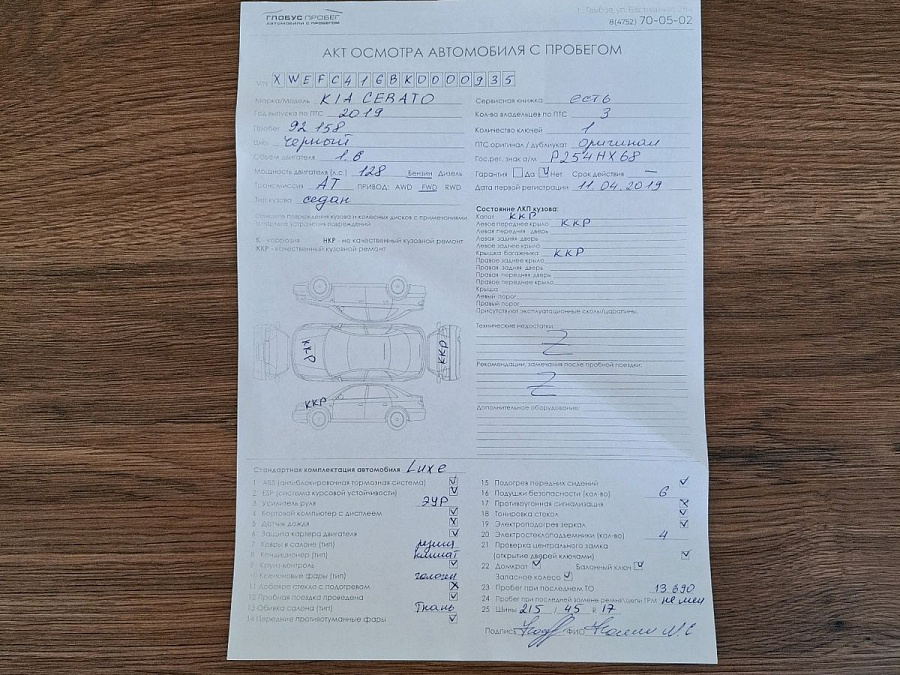 ГЛОБУС ПРОБЕГ
АВТОМОБИЛИ С ПРОБЕГОМ
8(4752) 70-05-02
АКТ ОСМОТРА АВТОМОБИЛЯ С ПРОБЕГОМ
VIN XWEFC416BK0000935
Марка/Модель KIA CERATO
Год выпуска по ПТС 2019
Пробег 92 158
Цвет черный
Объем двигателя 1.6
Мощность двигателя (л.с.) 128 Бензин Дизель
Трансмиссия АТ ПРИВОД: AWD FWD RWD
Тип кузова седан
Сервисная книжка есть
Кол-во владельцев по ПТС 3
Количество ключей 1
ПТС оригинал / дубликат оригинал
Гос.рег. знак а/м Р254НХ68
Гарантия Да Нет Срок действия —
Дата первой регистрации 11.04.2019
К - коррозия НКР - не качественный кузовной ремонт
ККР - качественный кузовной ремонт
ККР
ККР
ККР
Состояние ЛКП кузова:
Капот ККР
Левое переднее крыло ККР
Левая передняя дверь
Левая задняя дверь
Левое заднее крыло
Крышка багажника ККР
Правое заднее крыло
Правая задняя дверь
Правая передняя дверь
Правое переднее крыло
Крыша
Левый порог
Правый порог
Присутствуют эксплуатационные сколы/царапины.
Технические недостатки:
Z
Рекомендации, замечания после пробной поездки:
Z
Дополнительное оборудование:
Стандартная комплектация автомобиля Luxe
1 ABS (антиблокировочная тормозная система)
2 ESP (система курсовой устойчивости)
3 Усилитель руля ЭУР
4 Бортовой компьютер с дисплеем
5 Датчик дождя
6 Защита картера двигателя
7 Ковры в салоне (тип) резина
8 Кондиционер (тип) климат
9 Круиз-контроль
10 Ксеноновые фары (тип) галоген
11 Лобовое стекло с подогревом
12 Пробная поездка проведена
13 Обивка салона (тип) Ткань
14 Передние противотуманные фары
15 Подогрев передних сидений
16 Подушки безопасности (кол-во) 6
17 Противоугонная сигнализация
18 Тонировка стекол
19 Электроподогрев зеркал
20 Электростеклоподъемники (кол-во) 4
21 Проверка центрального замка
(открытие дверей ключами)
22 Домкрат Балонный ключ
Запасное колесо
23 Пробег при последнем ТО
24 Пробег при последней замене ремня/цепи ГРМ
25 Шины 215 / 45 R 17
Подпись ФИО